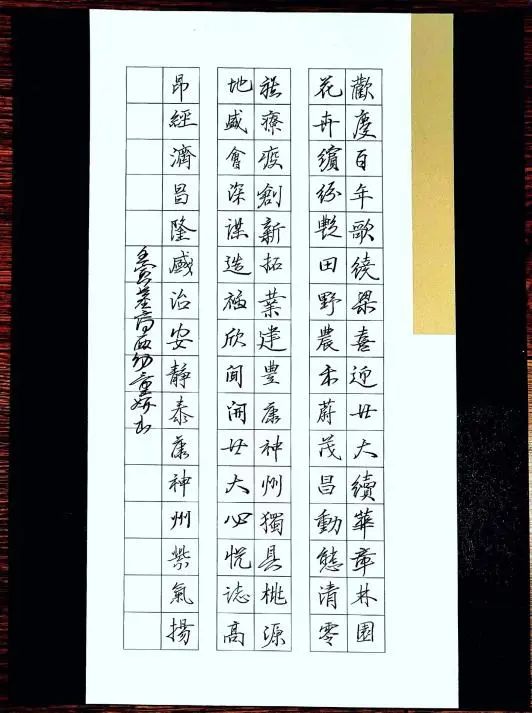 歡慶百年歌繞梁喜迎廿大續華章林園
花卉繽紛艷田野農禾蔚茂昌動態清零
療疫創新拓業建豐康神州獨具桃源
地盛會深謀造福欣聞開廿大心悦誌高
昂經濟昌隆盛治安靜泰康神州紫氣揚